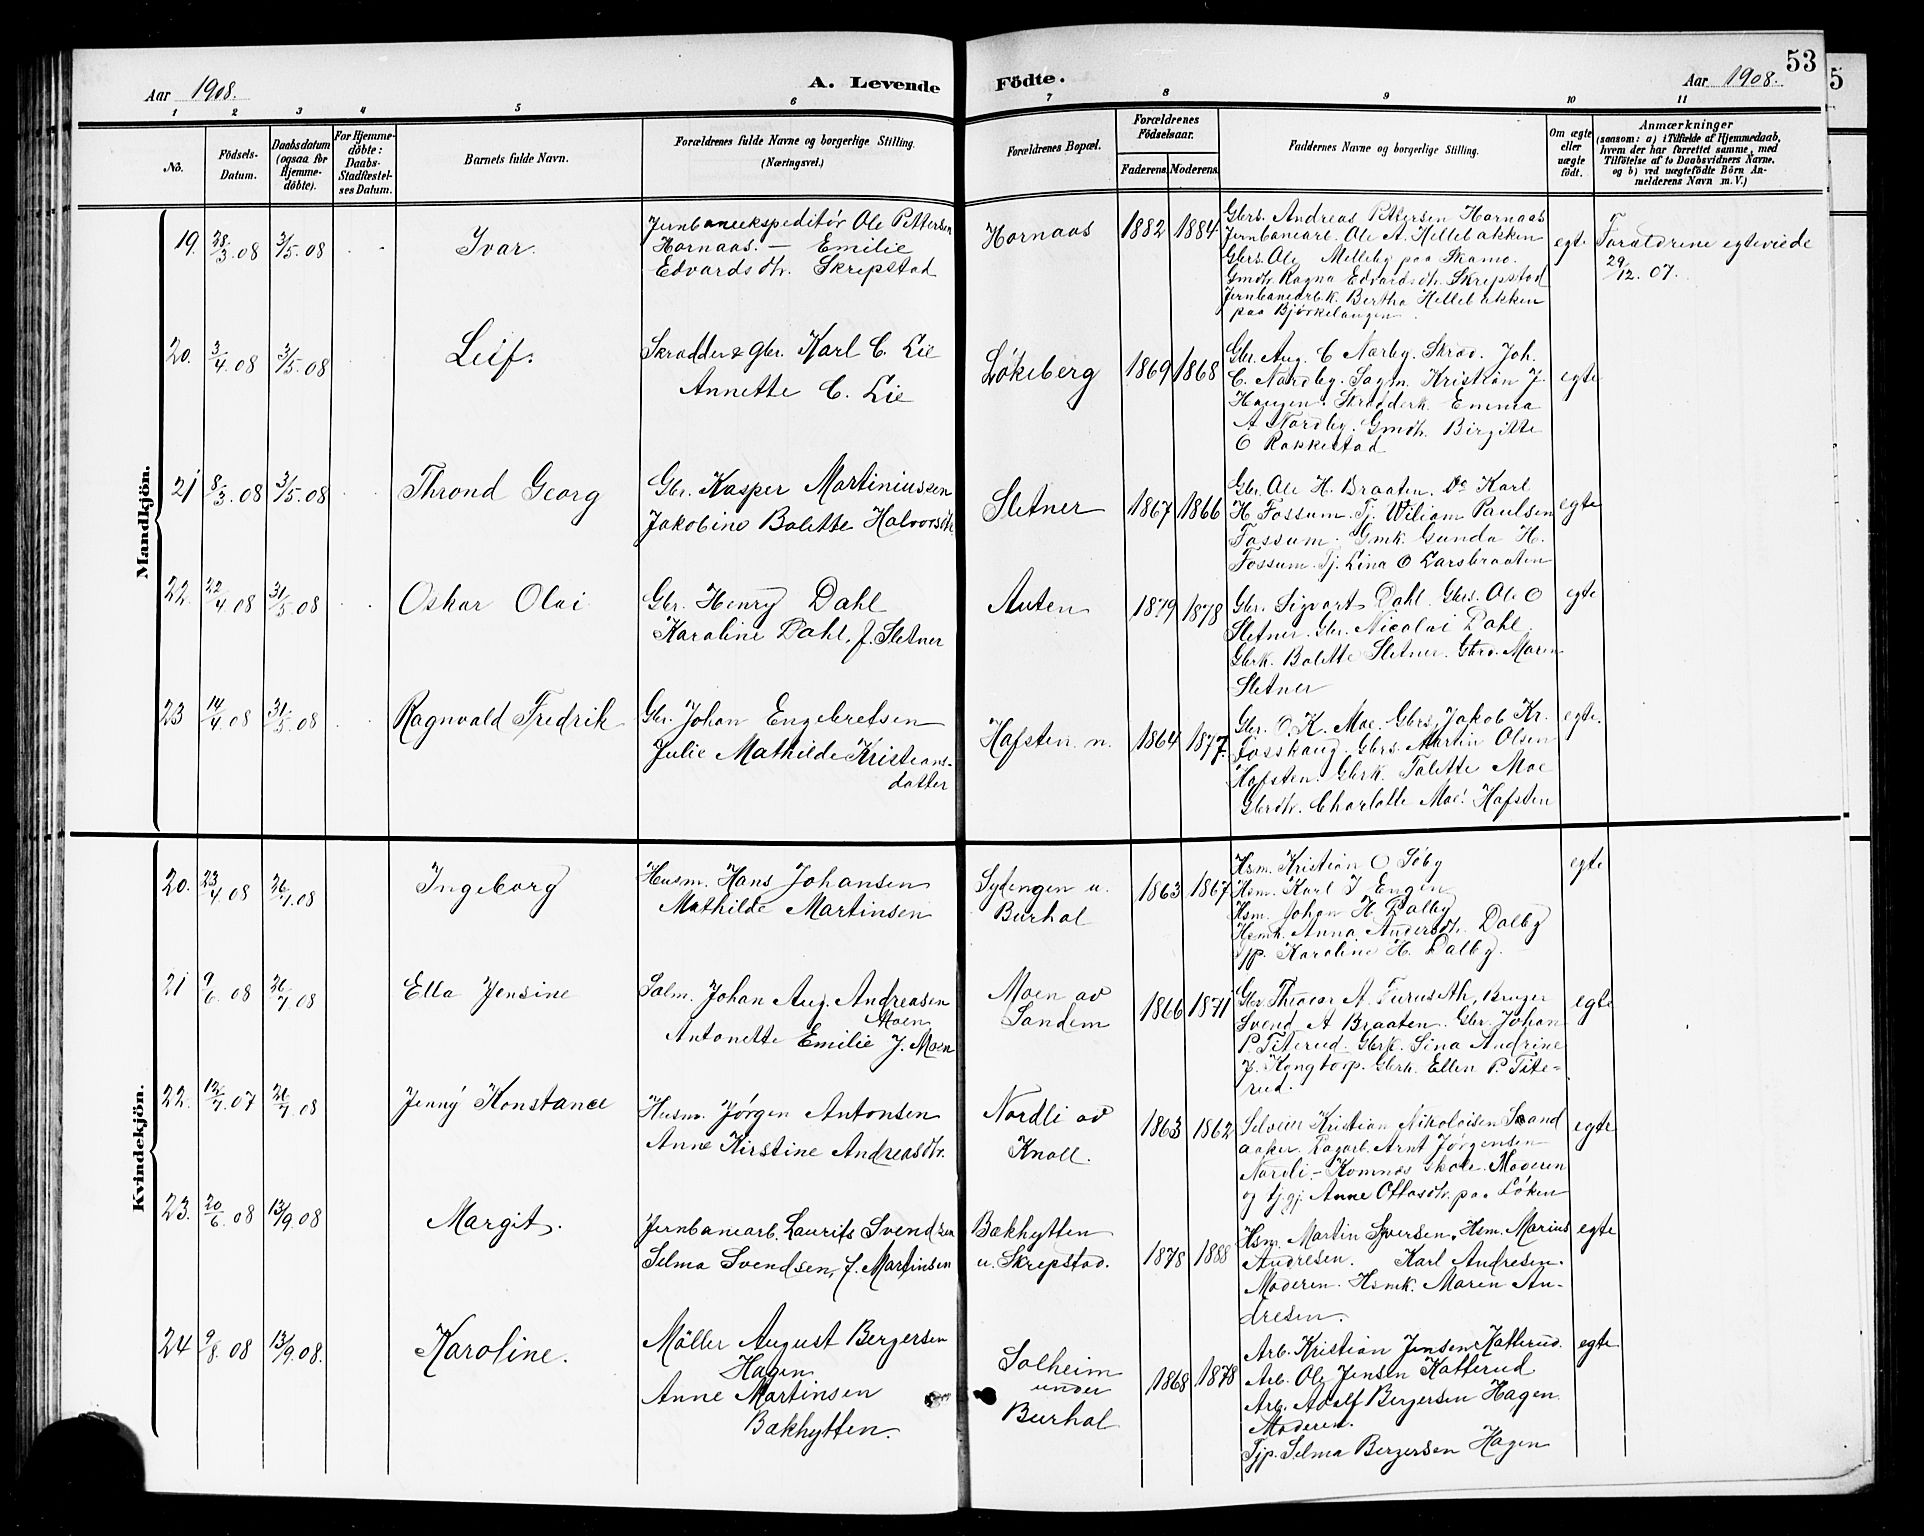 53
5
Aar 1908.
A. Levende
Födte.
Aar 1908.
1 2 3 4 5 6 7 8 9 10 11
No.
Födsels-
Datum.
Daabsdatum
(ogsaa for
Hjemme-
döbte).
For Hjemme-
döbte:
Daabs-
Stadfæstel-
ses Datum.
Barnets fulde Navn.
Forældrenes fulde Navne og borgerlige Stilling.
(Næringsvei.)
Forældrenes Bopæl.
Forældrenes
Födselsaar.
Faderens.
Moderens.
Faddernes Navne og borgerlige Stilling.
Om ægte
eller
uægte
födt.
Anmærkninger
(saasom: a) i Tilfælde af Hjemmedaab,
hvem der har forrettet samme, med
Tilföielse af to Daabsvidners Navne,
og b) ved uægtefödte Börn An-
melderens Navn m. V.)
Mandkjön.
19. 28/3.08 3/5.08
Ivar.
Jernbaneekspeditör Ole Pettersen
Hornaas. — Emilie
Edvardsdtr. Skrepstad
Hornaas
1882 1884
Gbrs. Andreas Pettersen Hornaas
Jernbanearb. Ole A. Hellebakken
Gbrs. Ole Melleby paa Skamo.
Gmdtr. Ragna Edvardsdtr. Skrepstad
Jernbanearbk. Bertha Hellebakken
paa Bjørkelangen.
egte
Forældrene egteviede
29/12.07.
20. 3/4.08 3/5.08
Leif.
Skrædder & Gbr. Karl C. Lie
Annette C. Lie
Løkeberg
1869 1868
Gbr. Aug. C Nærby. Skræd. Joh.
C. Nordby. Sagm. Kristian J.
Haugen. Skrædderk. Emma
A Nordby. Gmdtr. Birgitte
O Rakkestad
egte
21 8/3.08 3/5.08
Thrond Georg
Gbr. Kasper Martiniussen
Jakobine Bolette Halvorsdtr
Sletner
1867 1866
Gbr. Ole H. Braaten. Do Karl
H Fossum. Tj. Wiliam Paulsen
Fossum. Gmk. Gunda H.
Fossum. Tj. Lina O Larsbraaten
egte
22. 22/4.08 31/5.08
Oskar Olai
Gbr. Henry Dahl
Karoline Dahl, f. Sletner
Auten
1879 1878
Gbr. Sigvart Dahl. Gbrs. Ole O
Sletner. Gbr. Nicolai Dahl.
Gbrk. Bolette Sletner. Gbrd. Maren
Sletner
egte
23 14/4.08 31/5.08
Ragnvald Fredrik
Gbr. Johan Engebretsen
Julie Mathilde Kristians-
datter
Hafsten n.
1864 1877.
Gbr. O. K. Moe. Gbrs. Jakob Kr.
Fosshaug. Gbrs. Martin Olsen
Hafsten. Gbrk. Talette Moe
Gbrdtr. Charlotte Moe. Hafsten
egte.
Kvindekjön.
20. 23/4.08 26/7.08
Ingeborg
Husm. Hans Johansen
Mathilde Martinsen
Sydengen u.
Burhol
1863 1867
Hsm. Kristian O Søby
Hsm. Karl J Engen
Hsm. Johan H Dalby
Hsmk. Anna Andersdtr. Dalby
Tjp. Karoline H. Dalby.
egte
21 9/6 08 26/7.08
Ella Jensine
Salm. Johan Aug. Andreasen
Moen
Antonette Emilie J. Moen
Moen av
Sandem
1866 1871
Gbr. Theodor A. Furuseth, Bruger
Svend A Braaten. Gbr. Johan
P. Titerud. Gbrk. Sina Andrine
J. Kongtorp. Gbrk. Ellen P. Tite-
rud.
egte
22. 12/7.07 26/7.08
Jenny Konstance
Husm. Jørgen Antonsen
Anne Kirstine Andreasdtr.
Nordli av
Knoll.
1863 1862
Selveier Kristian Nikolaisen Saand
aaker. Arnt Jørgensen
Nordli - Komnæs skole. Moderen
og tj.gj. Anne Ottosdtr. paa Løken
egte
23. 20/6.08 13/9.08
Margit.
Jernbanearb. Laurits Svendsen
Selma Svendsen, f. Martinsen
Bakhytten
u. Skrepstad.
1878 1888
Hsm. Martin Syversen. Hsm. Marius
Andresen. Karl Andresen.
Moderen. Hsmk. Maren An-
dresen.
egte
24 9/8.08 13/9.08.
Karoline.
Møller August Bergersen
Hagen
Anne Martinsen
Bakhytten.
Solheim
under
Burhol
1868 1878
Arb. Kristian Jensen Katterud.
Arb. Ole Jensen Katterud
Arb. Adolf Bergersen Hagen
Moderen.
Tjp. Selma Bergersen Hagen
egte